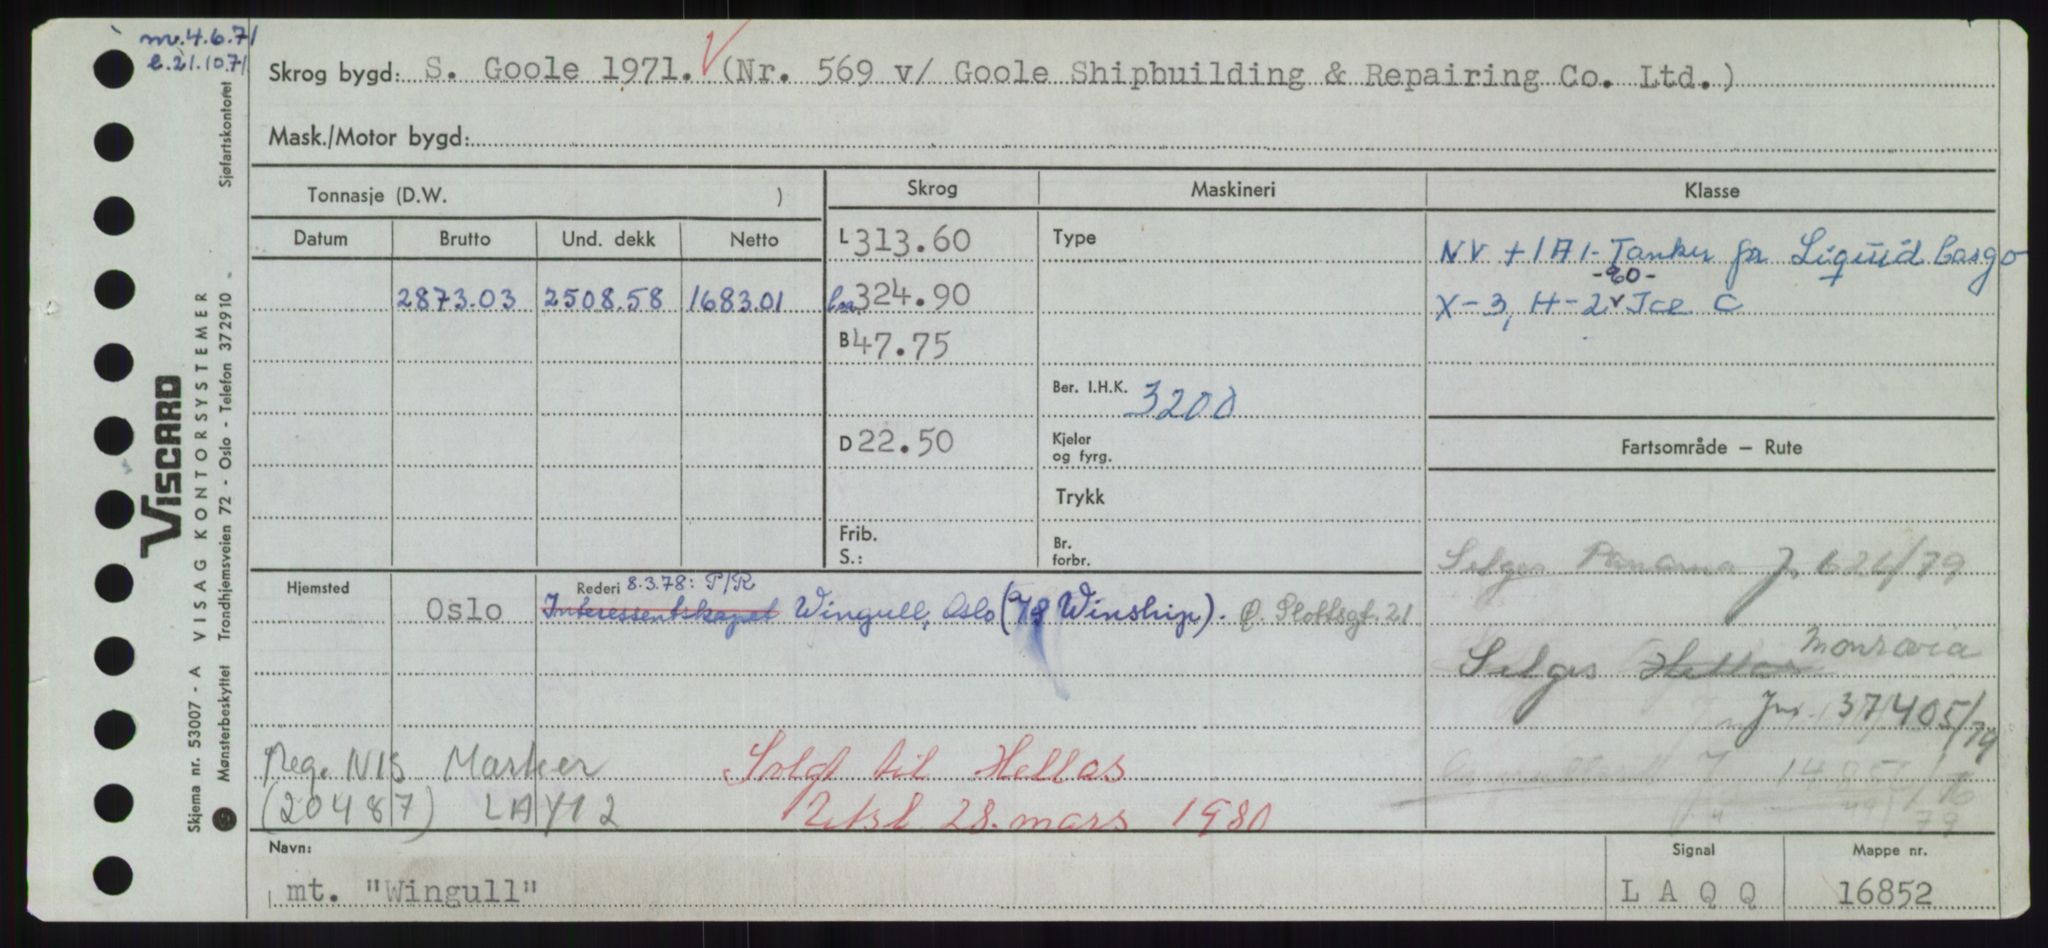 mv.4.6.71
l.21.10.71
Skrog bygd: S. Goole 1971. (Nr. 569 v/ Goole Shipbuilding & Repairing Co. Ltd.)
Mask./Motor bygd:
Tonnasje (D.W. )
Skrog
Maskineri
Klasse
Datum Brutto Und. dekk Netto
L 313.60
Type
NV + 1A1 - Tanker for Liquid Cargo
-90-
2873.03 2508.58 1683.01
Loa 324.90
X-3, H-2 v Ice C
B 47.75
Ber. I.H.K. 3200
D 22.50
Kjeler
og fyrg.
Fartsområde — Rute
Trykk
Frib.
S.:
Br.
forbr.
Selges Panama J. 626/79
Hjemsted
Rederi 8.3.78: P/R
Oslo
Interessentskapet Wingull, Oslo (A/S Winship). Ø. Slottsgt. 21
Monrovia
Selges Hellas
Jnr. 37405/79
Reg. NIS Marker
Solgt til Hellas
14851/76
(20487) LAYI2
Slettet 28. mars 1980
79
Navn:
mt. "Wingull"
Signal
LAQQ
Mappe nr.
16852
Sjøfartskontoret
VISCARD
VISAG KONTORSYSTEMER
Trondhjemsveien 72 - Oslo - Telefon 372910
Skjema nr. 53007 - A
Mønsterbeskyttet